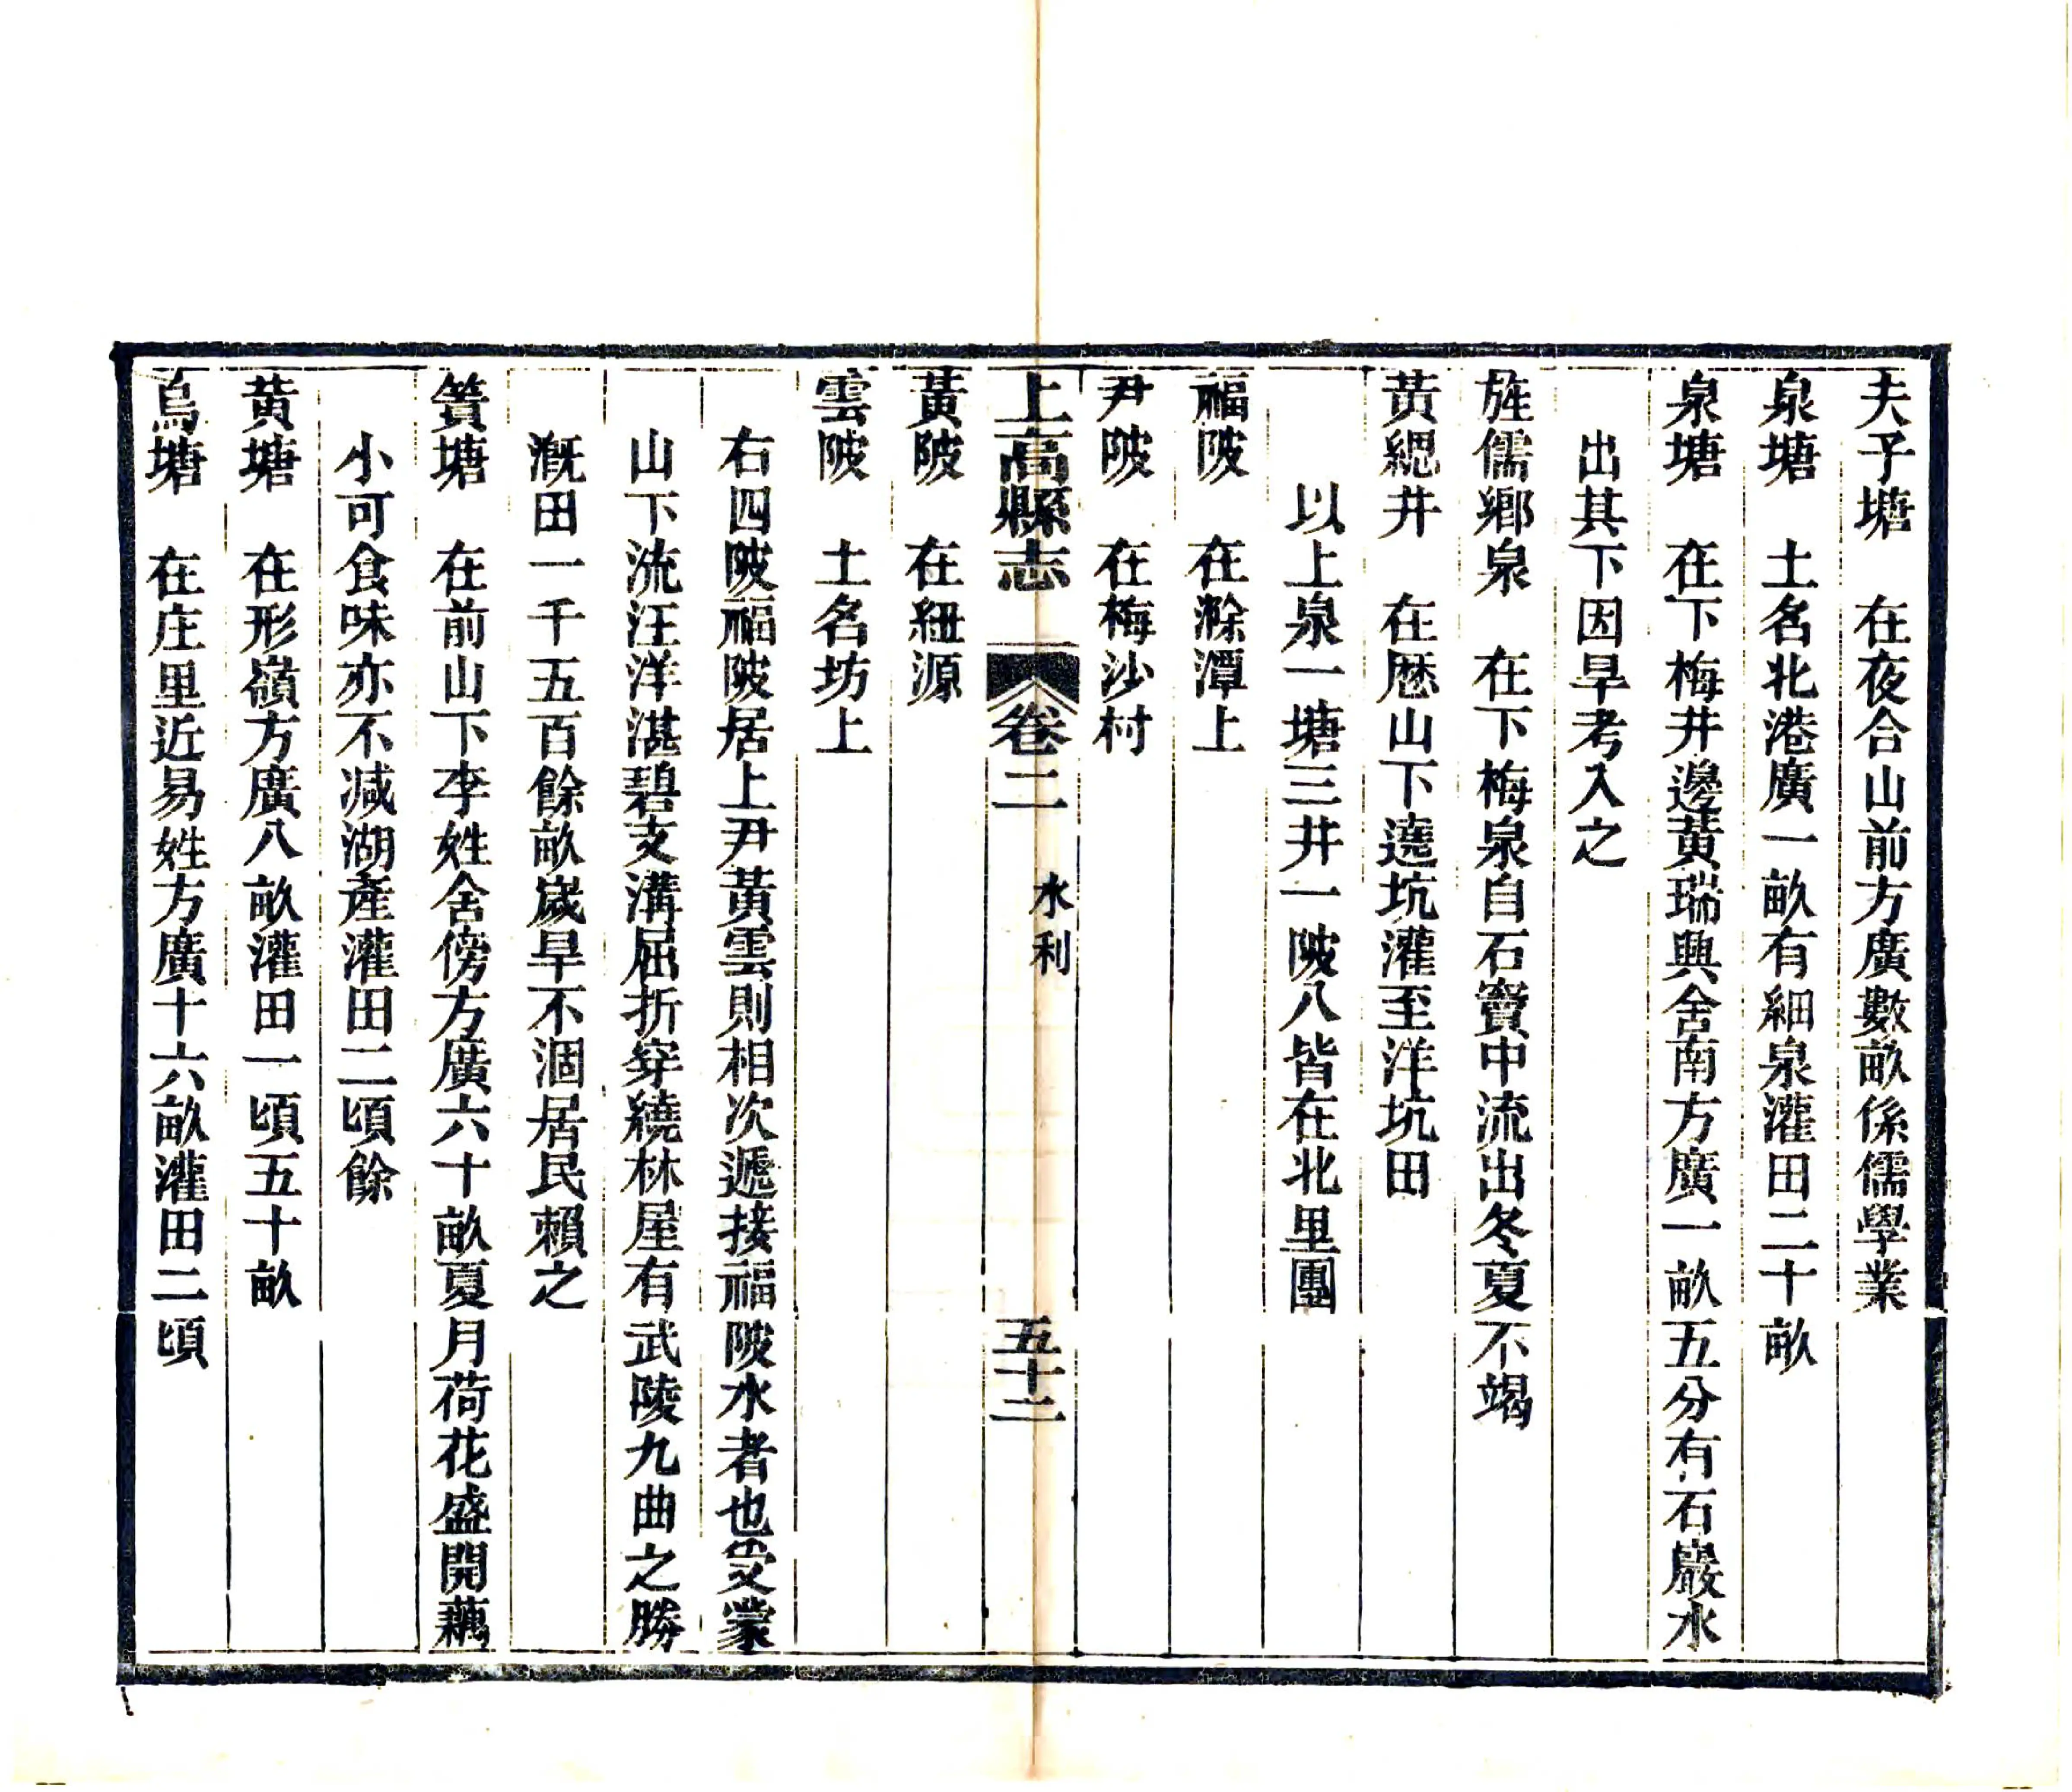 夫子塘　在夜合山前方廣數畝係儒學業
泉塘　土名北港廣一畝有細泉灌田二十畝
泉塘　在下梅井邊黃瑞興舍南方廣一畝五分有石巖水
出其下因旱考入之
旌儒鄉泉　在下梅泉自石竇中流出冬夏不竭
黃緦井　在歷山下遶坑灌至洋坑田
以上泉一塘三井一陂八皆在北里團
福陂　在滁潭上
尹陂　在梅沙村
上高縣志　卷二　水利　五十二
黃陂　在紐源
雲陂　土名坊上
右四陂福陂居上尹黃雲則相次遞接福陂水者也受蒙
山下流汪洋湛碧支溝屈折穿繞林屋有武陵九曲之勝
漑田一千五百餘畝歲旱不涸居民賴之
簣塘　在前山下李姓舍傍方廣六十畝夏月荷花盛開藕
小可食味亦不減湖產灌田二頃餘
黃塘　在形嶺方廣八畝灌田一頃五十畝
烏塘　在庄里近易姓方廣十六畝灌田二頃